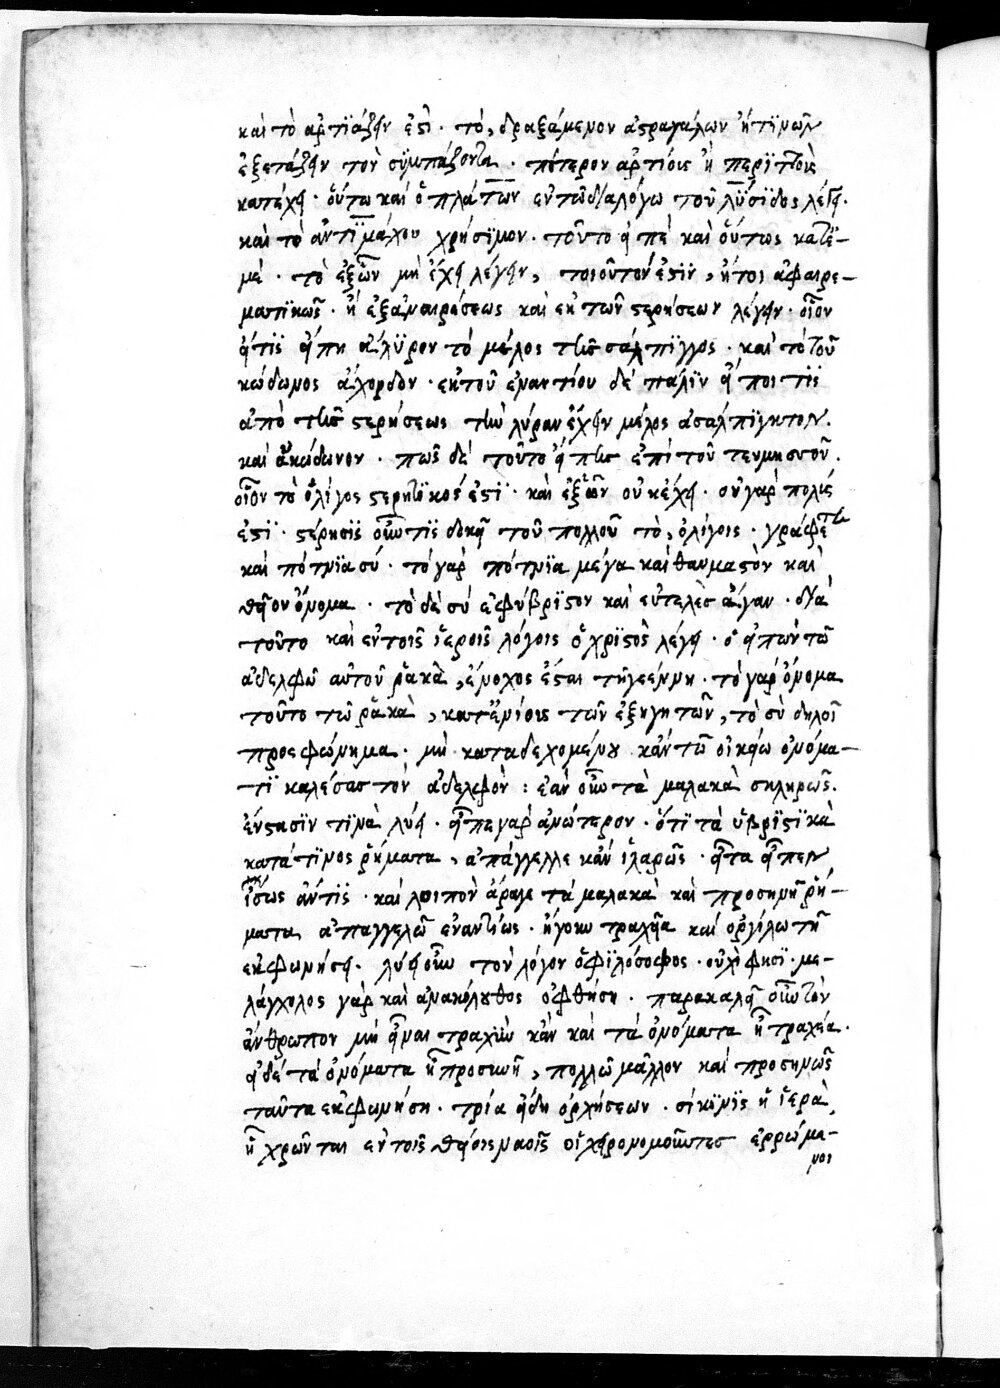 καὶ τὸ ἀρτϊάζειν ἐστὶ · τὸ, δραξάμενον ἀστραγάλων ἤ τϊνῶν
ἐξετάζειν τὸν συμπάζοντα · πότερον ἀρτίοις ἢ περϊττοῖς
κατέχει · οὕτω καὶ ὁ πλάτων ἐν τῶ διαλόγω τοῦ λϋσϊδος λέγει ·
καὶ τὸ ἀντϊμάχου χρήσϊμον · τοῦτο εἶπε καὶ οὕτως κατϊ-
μὲ · τὸ ἐξὧν μὴ ἔχει λέγειν, τοιοῦτον ἐστϊν, ἤτοι ἀφαιρε-
ματϊκῶς · ἢ ἐξαναιρέσεως καὶ ἐκ τῶν στερήσεων λέγειν · οἷον
εἴτϊς εἴπη ἄλϋρον τὸ μέλος τῆς σάλπϊγγος · καὶ τὸ τοῦ
κώδωνος ἄχορδον · ἐκ τοῦ ἐναντίου δὲ πάλϊν εἴποι τϊς
ἀπὸ τῆς στερήσεως τὴν λύραν ἔχειν μέλος ἀσάλπϊγκτον ·
καὶ ἀκώδωνον · πῶς δὲ τοῦτο εἴπης ἐπὶ τοῦ τευμησοῦ ·
οἷον τὸ ὀλίγος στερητϊκός ἐστϊ · καὶ ἐξ ὧν οὐκ ἔχει · οὐ γὰρ πολύς
ἐστϊ · στέρησϊς οὖν τϊς δοκεῖ τοῦ πολλοῦ τὸ, ὀλίγοις · γράφεται
καὶ πότνϊα σύ · τὸ γὰρ πότνϊα μέγα καὶ θαυμαστὸν καὶ
θεῖον ὄνομα · τὸ δὲ σύ ἐφύβρϊστον καὶ εὐτελὲς ἄγαν · δϊὰ
τοῦτο καὶ ἐν τοῖς ἱεροῖς λόγοις ὁ χρϊστὸς λέγει · ὁ εἰπών τῶ
ἀδελφῶ αὐτοῦ ῥακὰ, ἔνοχος ἔσται τῆ γεέννη · τὸ γὰρ ὄνομα
τοῦτο τῶ ῥακὰ, κατ ἐνίοις τῶν ἐξηγητῶν, τὸ σὺ δηλοῖ
προσφώνημα · μὴ καταδεχομένου κἀν τῶ οἰκείω ὀνόμα-
τϊ καλέσας τὸν ἀδελφὸν : ἐὰν οὖν τὰ μαλακὰ σκληρῶς ·
ἔνστασϊν τϊνὰ λύει · εἶπε γὰρ ἀνώτερον · ὅτϊ τὰ ὑβρϊστϊκὰ
κατά τϊνος ῥήματα, ἀπάγγελλε κἂν ἱλαρῶς · εἶτα εἶπεν
ἴσως ἄν τϊς · καὶ λοιπὸν ἆραγε τὰ μαλακὰ καὶ προσηνῆ ῥή-
ματα ἀπαγγελῶ ἐναντίως · ἤγουν τραχεῖα καὶ ὀργίλω τῆ
ἐκφωνήσει · λύει οὖν τὸν λόγον ὁ φϊλόσοφος · οὐχὶ φησϊ · με-
λάγχολος γὰρ καὶ ἀνακόλουθος ὀφθήση · παρακαλεῖ οὖν τὸν
ἄνθρωπον μὴ εἶναι τραχὺν κἂν καὶ τὰ ὀνόματα ἦ τραχέα ·
εἰ δὲ τὰ ὀνόματα ἦ προσηνῆ, πολλῶ μᾶλλον καὶ προσηνῶς
ταῦτα ἐκφωνήση · τρία εἴδη ὀρχήσεων · σίκϊνϊς ἡ ἱερὰ
ἧ χρῶνται ἐν τοῖς θείοις ναοῖς οἱ χειρονομοῦντες ἐρρώμε-
νοι